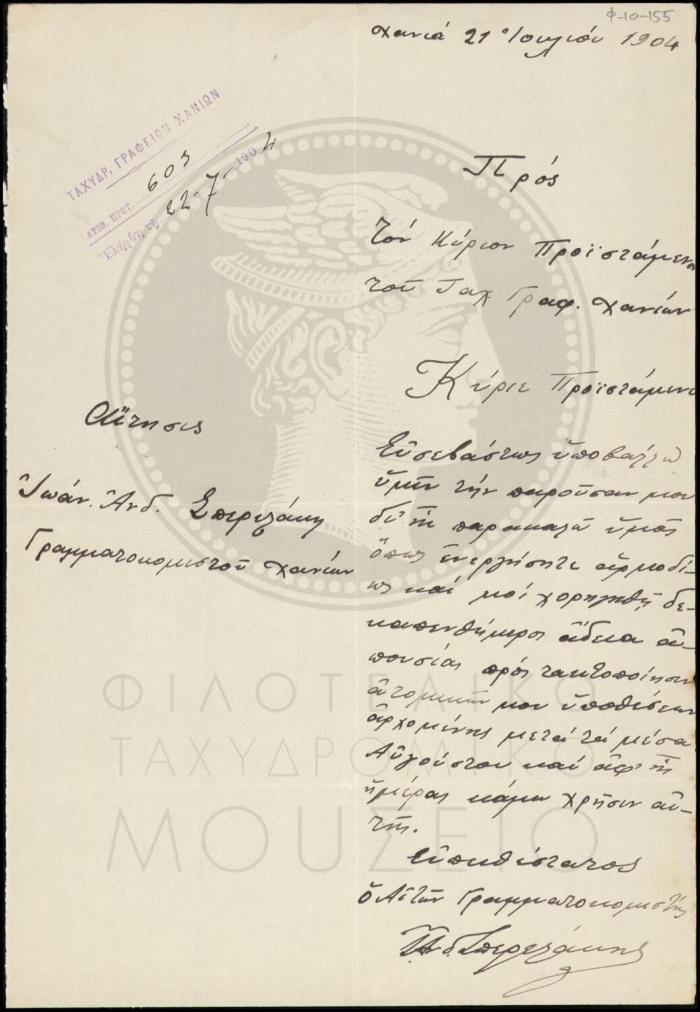 Φ-10-155
Χανιά 21 Ἰουλίου 1904
ΤΑΧΥΔΡ. ΓΡΑΦΕΙΟΝ ΧΑΝΙΩΝ
ΑΡΙΘ. ΠΡΩΤ. 603
22-7-1904
Πρός
Τόν Κύριον Προϊστάμενον
τοῦ Ταχ Γραφ. Χανίων
Κύριε Προϊστάμενε
Αἴτησις
Ἰωάν. Ἀνδ. Σπερεζάκη
Γραμματοκομιστοῦ Χανίων
Εὐσεβάστως ὑποβάλλω
ὑμῖν τήν παροῦσαν μου
δι' ἧς παρακαλῶ ὑμᾶς
ὅπως ἐνεργήσητε ἁρμοδί-
ως καί μοί χορηγηθῇ δε-
καπενθήμερος ἄδεια ἀ-
πουσίας πρός τακτοποίησιν
ἀτομικῶν μου ὑποθέσεων
ἀρχομένης μετά τά μέσα
Αὐγούστου καί ἀφ' ἧς
ἡμέρας κάμω χρῆσιν αὐ-
τῆς.
εὐπειθέστατος
ὁ Αἰτῶν Γραμματοκομιστής
Ἰ. Ἀνδ. Σπερεζάκης
ΦΙΛΟΤΕΛΙΚΟ
ΤΑΧΥΔΡΟΜΙΚΟ
ΜΟΥΣΕΙΟ